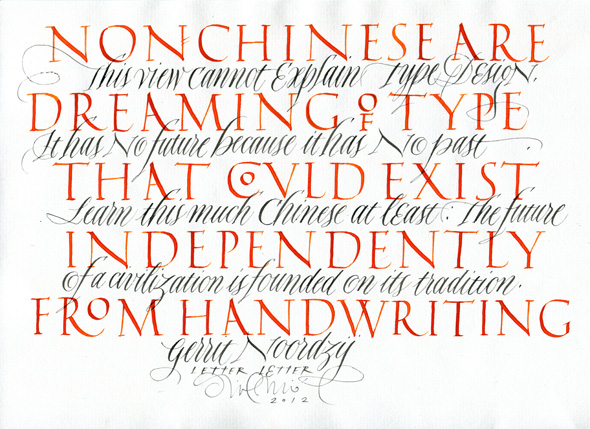 NONCHINESE ARE
This view cannot Explain Type DesigN.
DREAMING OF TYPE
It has No future because it has No past
THAT COVLD EXIST
Learn this much Chinese at least. The future
INDEPENDENTLY
of a civilization is founded on its tradition.
FROM HANDWRITING
Gerrit Noordzij
LETTER LETTER
2012